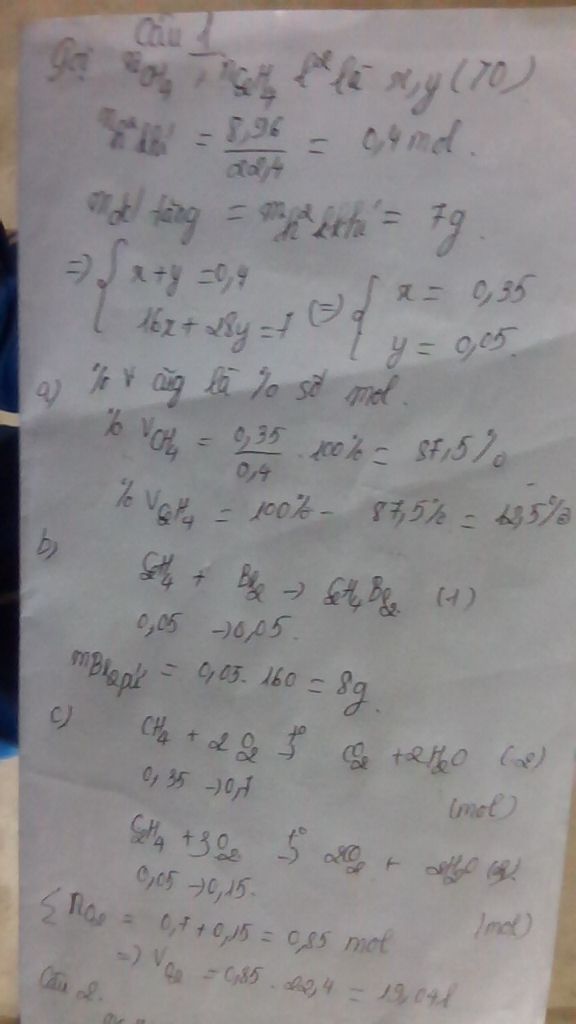 Câu 1
Gọi nCH4, nC2H4 lần lượt là x, y (>0)
n h² khí = 8,96/22,4 = 0,4 mol.
m tăng = m h² khí = 7g.
=> { x + y = 0,4 (=) { x = 0,35
16x + 28y = 7 y = 0,05.
a) % V cũng là % số mol.
% VCH4 = 0,35/0,4 . 100% = 87,5%
% VC2H4 = 100% - 87,5% = 12,5%
b)
C2H4 + Br2 → C2H4Br2 (1)
0,05 → 0,05.
mBr2 pứ = 0,05. 160 = 8g.
c)
CH4 + 2O2 t°→ CO2 + 2H2O (2)
0,35 → 0,7 (mol)
C2H4 + 3O2 t°→ 2CO2 + 2H2O (3)
0,05 → 0,15. (mol)
Σ nO2 = 0,7 + 0,15 = 0,85 mol
=> VO2 = 0,85 . 22,4 = 19,04l
Câu 2.